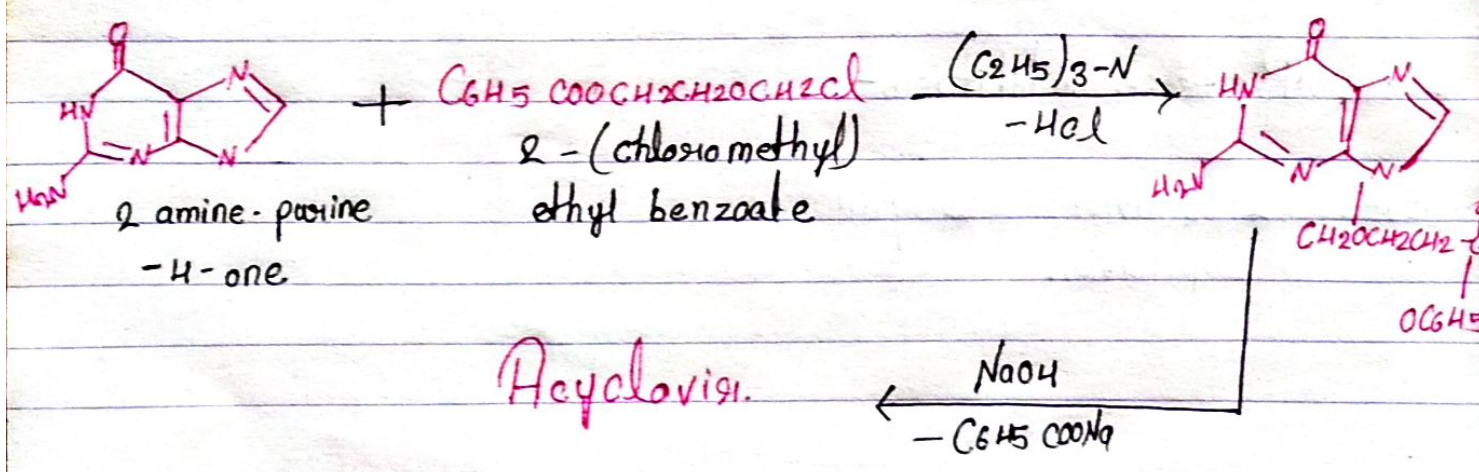 O
HN
N
N
N
H2N
2 amine-purine
-4-one
+
C6H5 COOCH2CH2OCH2Cl
2-(chloromethyl)
ethyl benzoate
(C2H5)3-N
-HCl
O
HN
N
N
N
H2N
CH2OCH2CH2-
OC6H5
NaOH
- C6H5 COONa
Acyclovir.